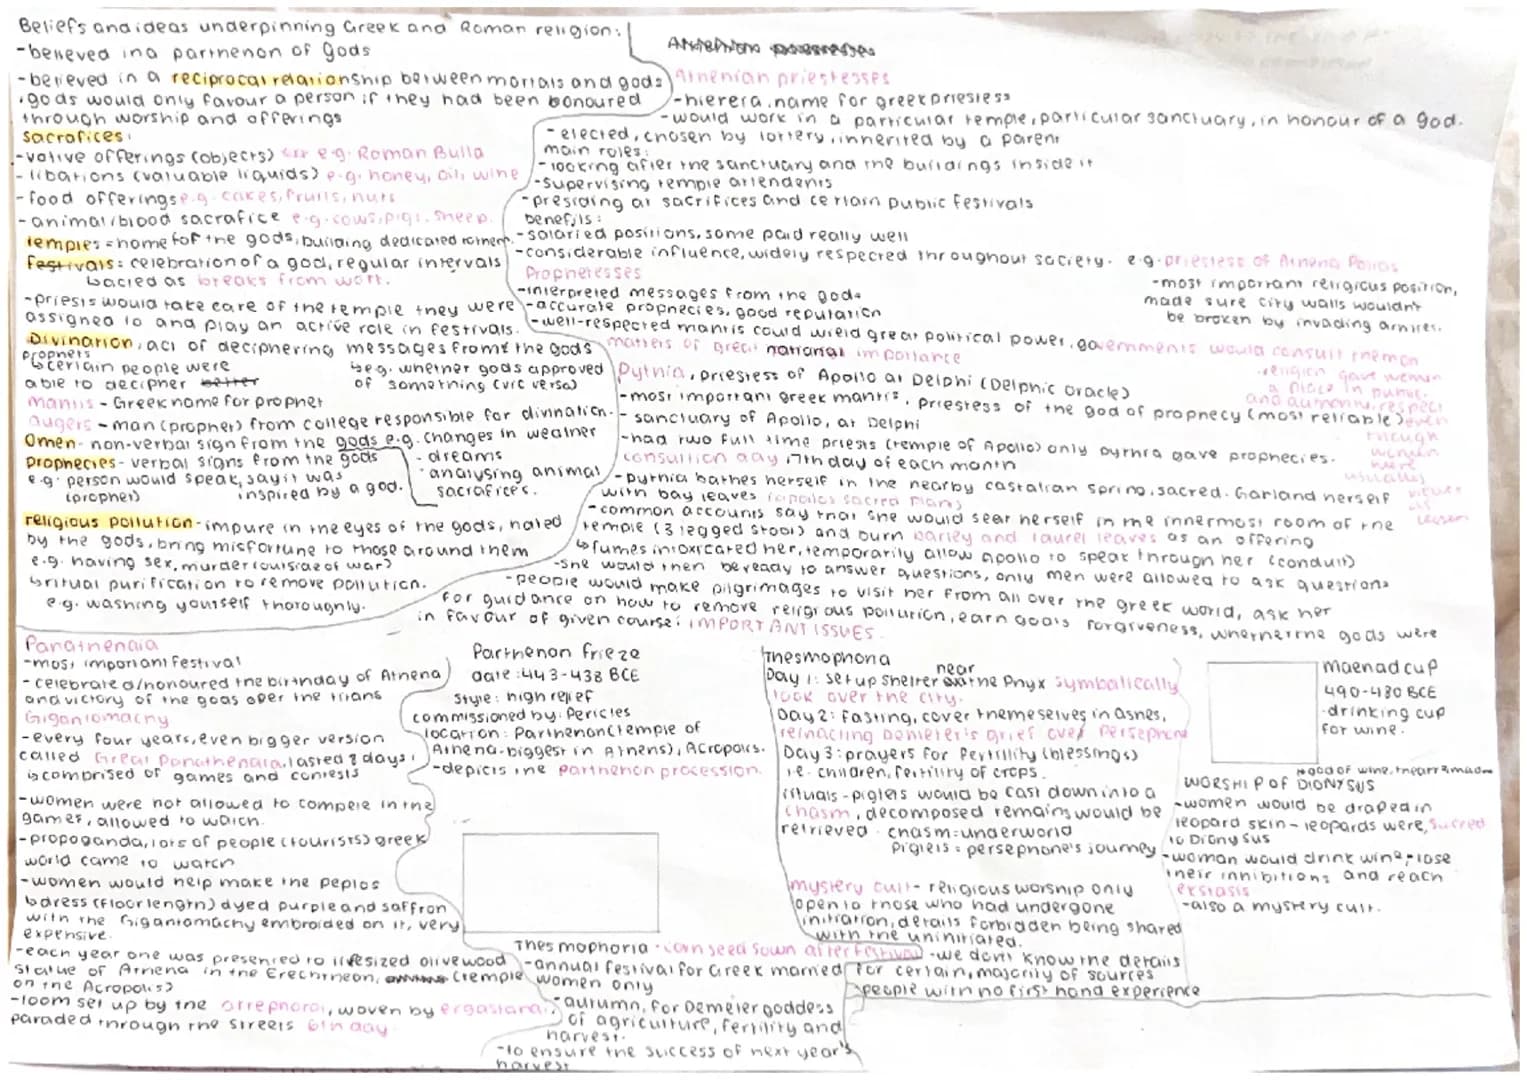 Beliefs and ideas underpinning Greek and Roman religion:
-believed in a parthenon of Gods
-believed in a reciprocal relationship between mortals and gods
.gods would only favour a person if they had been honoured
through worship and offerings
sacrofices:
-votive offerings (objects) e.g. Roman Bulla
-libations (valuable liquids) e.g. honey, oil, wine
-food offerings e.g. cakes, fruits, nuts
-animal/blood sacrafice e.g. cows, pigs, sheep.
temples = home for the gods, building dedicated to them.
festivals: celebration of a god, regular intervals
↳acted as breaks from work.
-priests would take care of the temple they were
assigned to and play an active role in festivals.
Divination, act of deciphering messages from the gods
prophets
↳certain people were
able to decipher better
↳e.g. whether gods approved
of something (vic versa)
mantis - Greek name for prophet
augers - man (prophet) from college responsible for divination.
Omen - non-verbal sign from the gods e.g. changes in weather
- dreams
· analysing animal
sacrafices.
prophecies - verbal signs from the gods
e.g. person would speak, say it was
(prophet) inspired by a god.
religious pollution - impure in the eyes of the gods, hated
by the gods, bring misfortune to those around them
e.g. having sex, murder (outside of war)
↳ritual purification to remove pollution.
e.g. washing yourself thoroughly.
Athenian priestesses
-hierera, name for greek priestess
-would work in a particular temple, particular sanctuary, in honour of a god.
-elected, chosen by lottery, inherited by a parent
main roles:
-looking after the sanctuary and the buildings inside it
-supervising temple attendents
-presiding at sacrifices and certain public festivals
benefits:
-salaried positions, some paid really well
-considerable influence, widely respected throughout society. e.g. priestess of Athena Polias
-most important religious position,
made sure city walls wouldn't
be broken by invading armies.
Prophetesses
-interpreted messages from the gods
-accurate prophecies, good reputation
-well-respected mantis could wield great political power, governments would consult them on
matters of great national importance
-religion gave women
a place in public
and authority, respect
even
though
women
were
usually
viewed
as
lesser
Pythia, priestess of Apollo at Delphi (Delphic oracle)
-most important greek mantis, priestess of the god of prophecy (most reliable)
- sanctuary of Apollo, at Delphi
-had two full time priests (temple of Apollo) only pythia gave prophecies.
consultion day, 7th day of each month
-pythia bathes herself in the nearby castalian spring, sacred. Garland herself
with bay leaves (apollos sacred plant)
-common accounts say that she would seat herself in the innermost room of the
temple (3 legged stool) and burn barley and laurel leaves as an offering
↳fumes intoxicated her, temporarily allow Apollo to speak through her (conduit)
-she would then be ready to answer questions, only men were allowed to ask questions
-people would make pilgrimages to visit her from all over the greek world, ask her
for guidance on how to remove religious pollution, earn gods forgiveness, whether the gods were
in favour of given course: IMPORTANT ISSUES.
Panathenaia
-most important festival
-celebrated/honoured the birthday of Athena
and victory of the gods over the titans
Gigantomachy
-every four years, even bigger version
called Great Panathenaia, lasted 8 days,
↳comprised of games and contests
-women were not allowed to compete in the
games, allowed to watch.
-propoganda, lots of people (tourists) greek
world came to watch
-women would help make the peplos
↳dress (floor length) dyed purple and saffron
with the Gigantomachy embroided on it, very
expensive.
-each year one was presented to lifesized olivewood
statue of Athena in the Erechtheon, (temple
on the Acropolis)
-loom set up by the arrephoroi, woven by ergastanai,
paraded through the streets 6th day
Parthenon frieze
date: 443-438 BCE
style: high relief
commissioned by: Pericles
location: Parthenon (temple of
Athena-biggest in Athens), Acropolis.
-depicts the parthenon procession.
Thesmophoria - corn seed sown after festival
-annual festival for Greek married
women only
-autumn, for Demeter goddess
of agriculture, fertility and
harvest.
-to ensure the success of next year's
harvest
Thesmophoria
Day 1: set up shelter near the Pnyx symbolically
took over the city.
Day 2: fasting, cover themeselves in ashes,
reinacting Demeter's grief over Persephone
Day 3: prayers for fertility (blessings)
i.e. children, fertility of crops.
rituals - piglets would be cast down into a
chasm, decomposed remains would be
retrieved. chasm = underworld
piglets = persephone's journey
mystery cult - religious worship only
open to those who had undergone
initiation, details forbidden being shared
with the uninitiated.
-we dont know the details
for certain, majority of sources
people with no first hand experience
maenad cup
490-480 BCE
-drinking cup
for wine.
↳god of wine, theatre, madn
WORSHIP OF DIONYSUS
-women would be draped in
leopard skin - leopards were sacred
to Dionysus
-woman would drink wine, lose
their inhibitions and reach
ekstasis
-also a mystery cult.